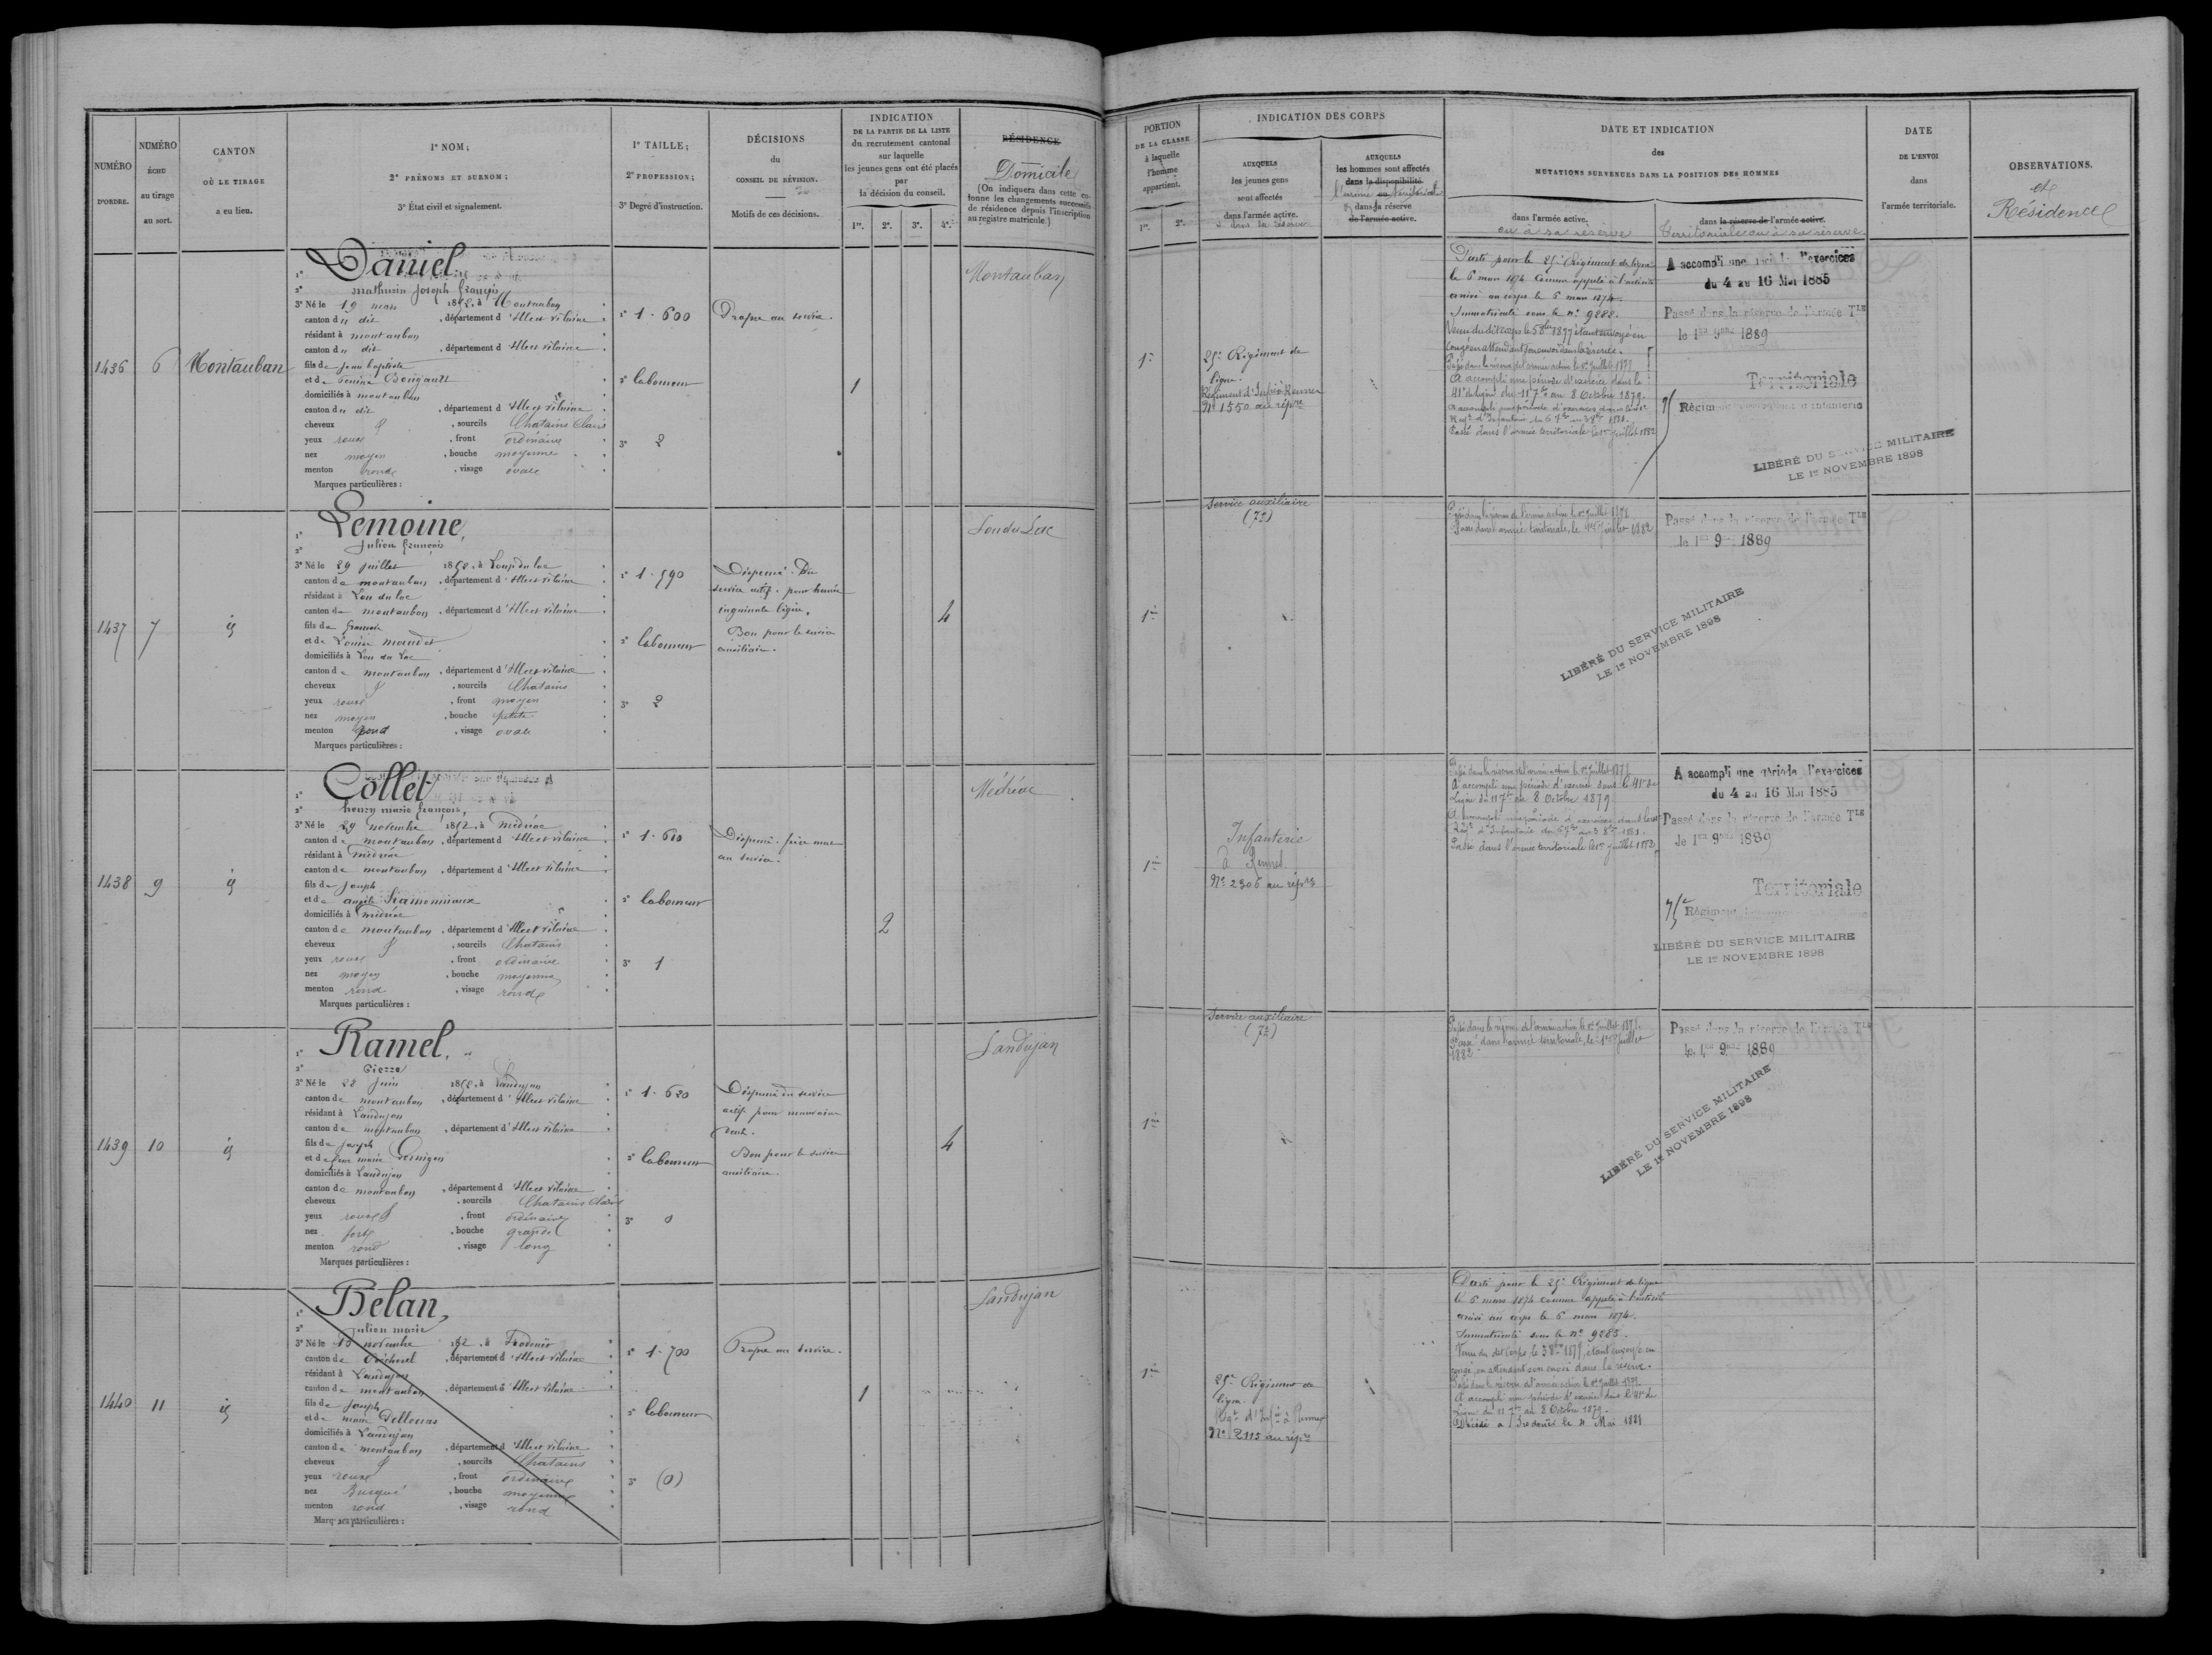 NUMÉRO
D'ORDRE.
NUMÉRO
ÉCHU
au tirage
au sort.
CANTON
OÙ LE TIRAGE
a eu lieu.
1° NOM;
2° PRÉNOMS ET SURNOM;
3° État civil et signalement.
1° TAILLE;
2° PROFESSION;
3° Degré d'instruction.
DÉCISIONS
du
CONSEIL DE RÉVISION.
Motifs de ces décisions.
INDICATION
DE LA PARTIE DE LA LISTE
du recrutement cantonal
sur laquelle
les jeunes gens ont été placés
par
la décision du conseil.
1re. 2e. 3e. 4e.
RÉSIDENCE
Domicile
(On indiquera dans cette co-
lonne les changements successifs
de résidence depuis l'inscription
au registre matricule.)
1436
6
Montauban
1° Daniel,
2° mathurin Joseph François
3° Né le 19 mars 1852, à Montauban
canton du dit, département d'Illeet vilaine
résidant à montauban
canton du dit, département d'Illeet vilaine
fils de Jean baptiste
et de
domiciliés à montauban
canton du dit, département d'Illeet vilaine
cheveux, sourcils Chatains Clairs
yeux roux, front ordinaire
nez moyen, bouche moyenne
menton rond, visage ovale
Marques particulières :
1° 1.600
2° laboureur
3° 2
Propre au service.
1
Montauban
1437
7
id
1° Lemoine,
2° Julien françois
3° Né le 29 Juillet 1852, à Lou du lac
canton de montauban, département d'Illeet vilaine
résidant à Lou du lac
canton de montauban, département d'Illeet vilaine
fils de François
et de Louise
domiciliés à Lou du Lac
canton de montauban, département d'Illeet vilaine
cheveux, sourcils Chatains
yeux roux, front moyen
nez moyen, bouche petite
menton rond, visage ovale
Marques particulières :
1° 1.590
2° laboureur
3° 2
Dispensé. Du
service actif. pour hernie
inguinale légère.
Bon pour le service
auxiliaire.
4
Lou du Lac
1438
9
id
1° Collet
2° henry marie françois,
3° Né le 29 novembre 1852, à médréac
canton de montauban, département d'Illeet vilaine
résidant à médréac
canton de montauban, département d'Illeet vilaine
fils de Joseph
et de
domiciliés à médréac
canton de montauban, département d'Illeet vilaine
cheveux, sourcils Chatains
yeux roux, front ordinaire
nez moyen, bouche moyenne
menton rond, visage ronde
Marques particulières :
1° 1.610
2° laboureur
3° 1
Dispensé. frère
au service.
2
Médréac
1439
10
id
1° Ramel,
2° Pierre
3° Né le 28 Juin 1852, à Landujan
canton de montauban, département d'Illeet vilaine
résidant à Landujan
canton de montauban, département d'Illeet vilaine
fils de Joseph
et de feue marie
domiciliés à Landujan
canton de montauban, département d'Illeet vilaine
cheveux, sourcils Chatains Clairs
yeux roux, front ordinaire
nez fort, bouche grande
menton rond, visage long
Marques particulières :
1° 1.620
2° laboureur
3° 0
Dispensé du service
actif pour mauvaise
dent.
Bon pour le service
auxiliaire.
4
Landujan
1440
11
id
1° Belan,
2° Julien marie
3° Né le 13 novembre 1852, à Tredouër
canton de Bécherel, département d'Illeet vilaine
résidant à Landujan
canton de montauban, département d'Illeet vilaine
fils de Joseph
et de marie
domiciliés à Landujan
canton de montauban, département d'Illeet vilaine
cheveux, sourcils Chatains
yeux roux, front ordinaire
nez Busqué, bouche moyenne
menton rond, visage rond
Marques particulières :
1° 1.700
2° laboureur
3° (0)
Propre au service.
1
Landujan
PORTION
DE LA CLASSE
à laquelle
l'homme
appartient.
1re. 2e.
INDICATION DES CORPS
AUXQUELS
les jeunes gens
sont affectés
dans l'armée active.
ou dans la réserve
AUXQUELS
les hommes sont affectés
dans la disponibilité
dans la réserve
de l'armée active.
DATE ET INDICATION
des
MUTATIONS SURVENUES DANS LA POSITION DES HOMMES
dans l'armée active.
ou à sa réserve
dans la réserve de l'armée active.
territoriale ou à sa réserve.
DATE
DE L'ENVOI
dans
l'armée territoriale.
OBSERVATIONS.
et
Résidence
1re
25e Régiment de
ligne.
Régiment d'Infie à Rennes
No 1550 au répre
Parti pour le 25e Régiment de ligne
le 6 mars 1874 comme appelé à l'activité
arrivé au corps le 6 mars 1874.
Immatriculé sous le no 9288.
congé en attendant son envoi dans la réserve.
Passé dans la réserve de l'armée active le 1er Juillet
A accompli une période d'exercice dans le
41e de ligne du 11 7bre au 8 Octobre 1879.
Passé dans l'armée territoriale le 1er juillet 1882
A accompli une période d'exercices
du 4 au 16 Mai 1885
Passé dans la réserve de l'armée Tle
le 1er 9bre 1889
Territoriale
75 Régiment d'infanterie
LIBÉRÉ DU SERVICE MILITAIRE
LE 1er NOVEMBRE 1898
1re
Service auxiliaire
(7e)
Passé dans la réserve de l'armée active le 1er Juillet
Passé dans l'armée territoriale, le 1er Juillet 1882
Passé dans la réserve de l'armée Tle
le 1er 9bre 1889
LIBÉRÉ DU SERVICE MILITAIRE
LE 1er NOVEMBRE 1898
1re
Infanterie
à Rennes
No 2306 au répre
Passé dans la réserve de l'armée active le 1er Juillet
A accompli une période d'exercice dans le 41e de
Ligne du 11 7bre au 8 Octobre 1879
Passé dans l'armée territoriale le 1er juillet 1882
A accompli une période d'exercices
du 4 au 16 Mai 1885
Passé dans la réserve de l'armée Tle
le 1er 9bre 1889
Territoriale
75e Régiment
LIBÉRÉ DU SERVICE MILITAIRE
LE 1er NOVEMBRE 1898
1re
Service auxiliaire
(7e)
Passé dans la réserve de l'armée active le 1er Juillet
Passé dans l'armée territoriale, le 1er Juillet
1882
Passé dans la réserve de l'armée Tle
le 1er 9bre 1889
LIBÉRÉ DU SERVICE MILITAIRE
LE 1er NOVEMBRE 1898
1re
25e Régiment de
ligne.
Régt d'Infie à Rennes
No 2115 au répre
Parti pour le 25e Régiment de ligne
le 6 mars 1874 comme appelé à l'activité
arrivé au corps le 6 mars 1874.
Immatriculé sous le no 9285.
congé, en attendant son envoi dans la réserve.
Passé dans la réserve de l'armée active le 1er Juillet
A accompli une période d'exercice dans le 41e de
Ligne du 11 7bre au 8 Octobre 1879.
Décédé à Tredouër le 4 Mai 1881